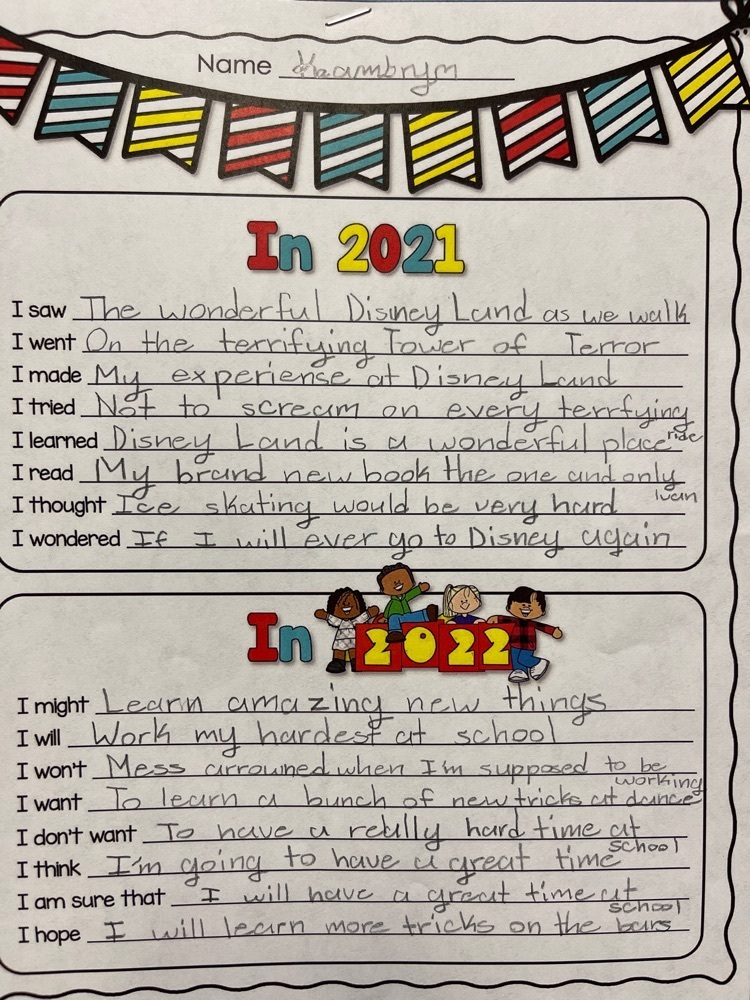 Name Kaambrym
In 2021
I saw The wonderful Disney Land as we walk
I went On the terrifying Tower of Terror
I made My experiense at Disney Land
I tried Not to scream on every terrfying
ride
I learned Disney Land is a wonderful place
I read My brand new book the one and only
Ivan
I thought Ice skating would be very hard
I wondered If I will ever go to Disney again
In 2022
I might Learn amazing new things
I will Work my hardest at school
I won't Mess arrouned when I'm supposed to be
working
I want To learn a bunch of new tricks at dance
I don't want To have a really hard time at
school
I think I'm going to have a great time
I am sure that I will have a great time at
school
I hope I will learn more tricks on the bars